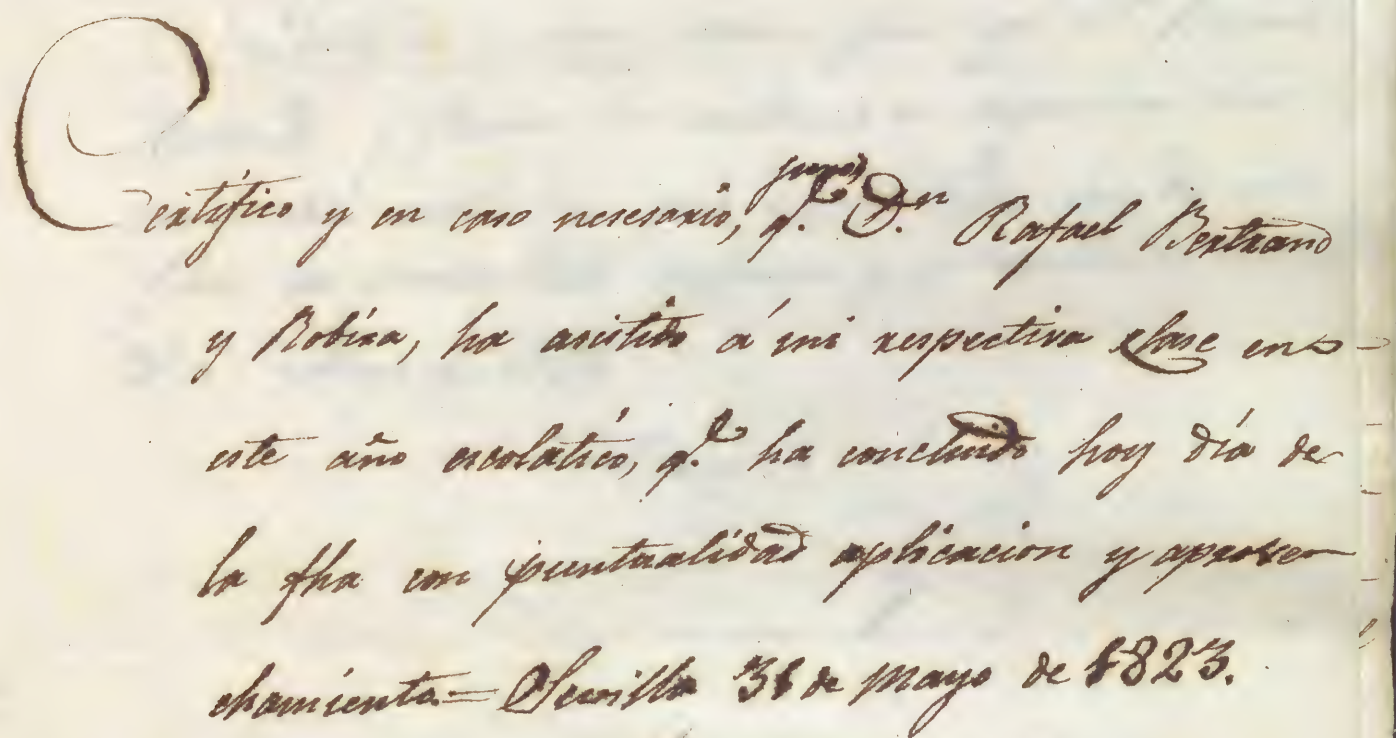 juro,
Certifico y en caso nesesario, q.e D.n Rafael Bertrand
y Robira, ha asistido á mi respectiva clase en
este año escolático, q.e ha concluido hoy día de
la fha con puntualidad aplicacion y aprove
chamiento = Sevilla 31 de Mayo de 1823.